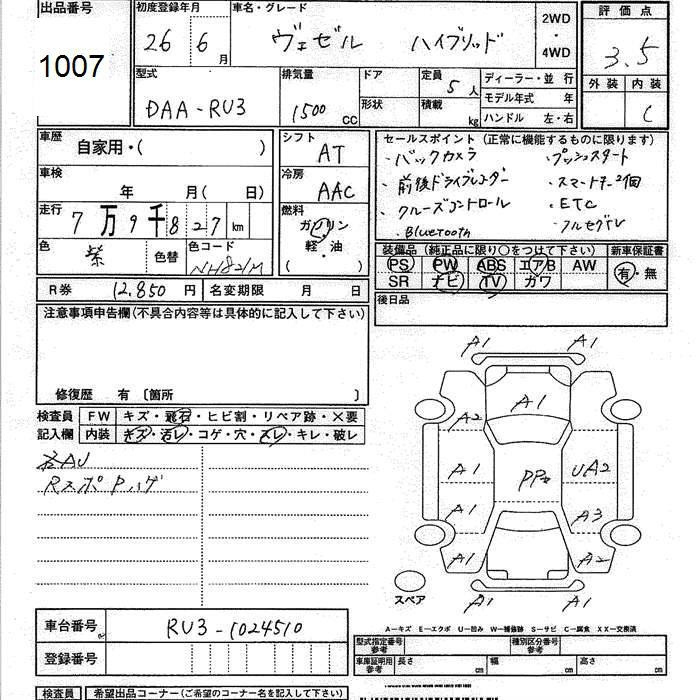 出品番号
1007
初度登録年月
26 6 月
車名・グレード
ヴェゼル ハイブリッド
2WD
・
4WD
評価点
3.5
外装 内装
C
型式
DAA-RU3
排気量
1500 CC
ドア
形状
定員 5 人
積載 kg
ディーラー・並 行
モデル年式 年
ハンドル 左・右
車歴
自家用・( )
車検
年 月( 日)
走行
7万9千827 km
色
紫
色替
色コード
NH821M
シフト
AT
冷房
AAC
燃料
ガソリン
軽・油
( )
セールスポイント (正常に機能するものに限ります)
・バックカメラ ・プッシュスタート
・前後ドライブレコーダー ・スマートキー2個
・クルーズコントロール ・ETC
・Bluetooth ・フルセグTV
装備品 (純正品に限り〇をつけて下さい)
PS PW ABS エアB AW
SR ナビ TV カワ
新車保証書
有・無
R券 12,850 円
名変期限 月 日
後日品
注意事項申告欄(不具合内容等は具体的に記入して下さい)
修復歴 有 〔箇所 〕
検査員
記入欄
FW キズ・飛石・ヒビ割・リペア跡・×要
内装 キズ・汚レ・コゲ・穴・スレ・キレ・破レ
各AU
RスポPハゲ
A1 A1
A1
A2
A1 PP UA2
A1 A3
A1 A2
A1 A1
スペア
A―キズ E―エクボ U―凹み W―補修跡 S―サビ C―腐食 XX―交換済
車台番号 RU3-1024510
登録番号
型式指定番号
参考
種別区分番号
参考
車庫証明用
参考
長さ cm 幅 cm 高さ cm
検査員 希望出品コーナー(ご希望のコーナー名を記入して下さい)